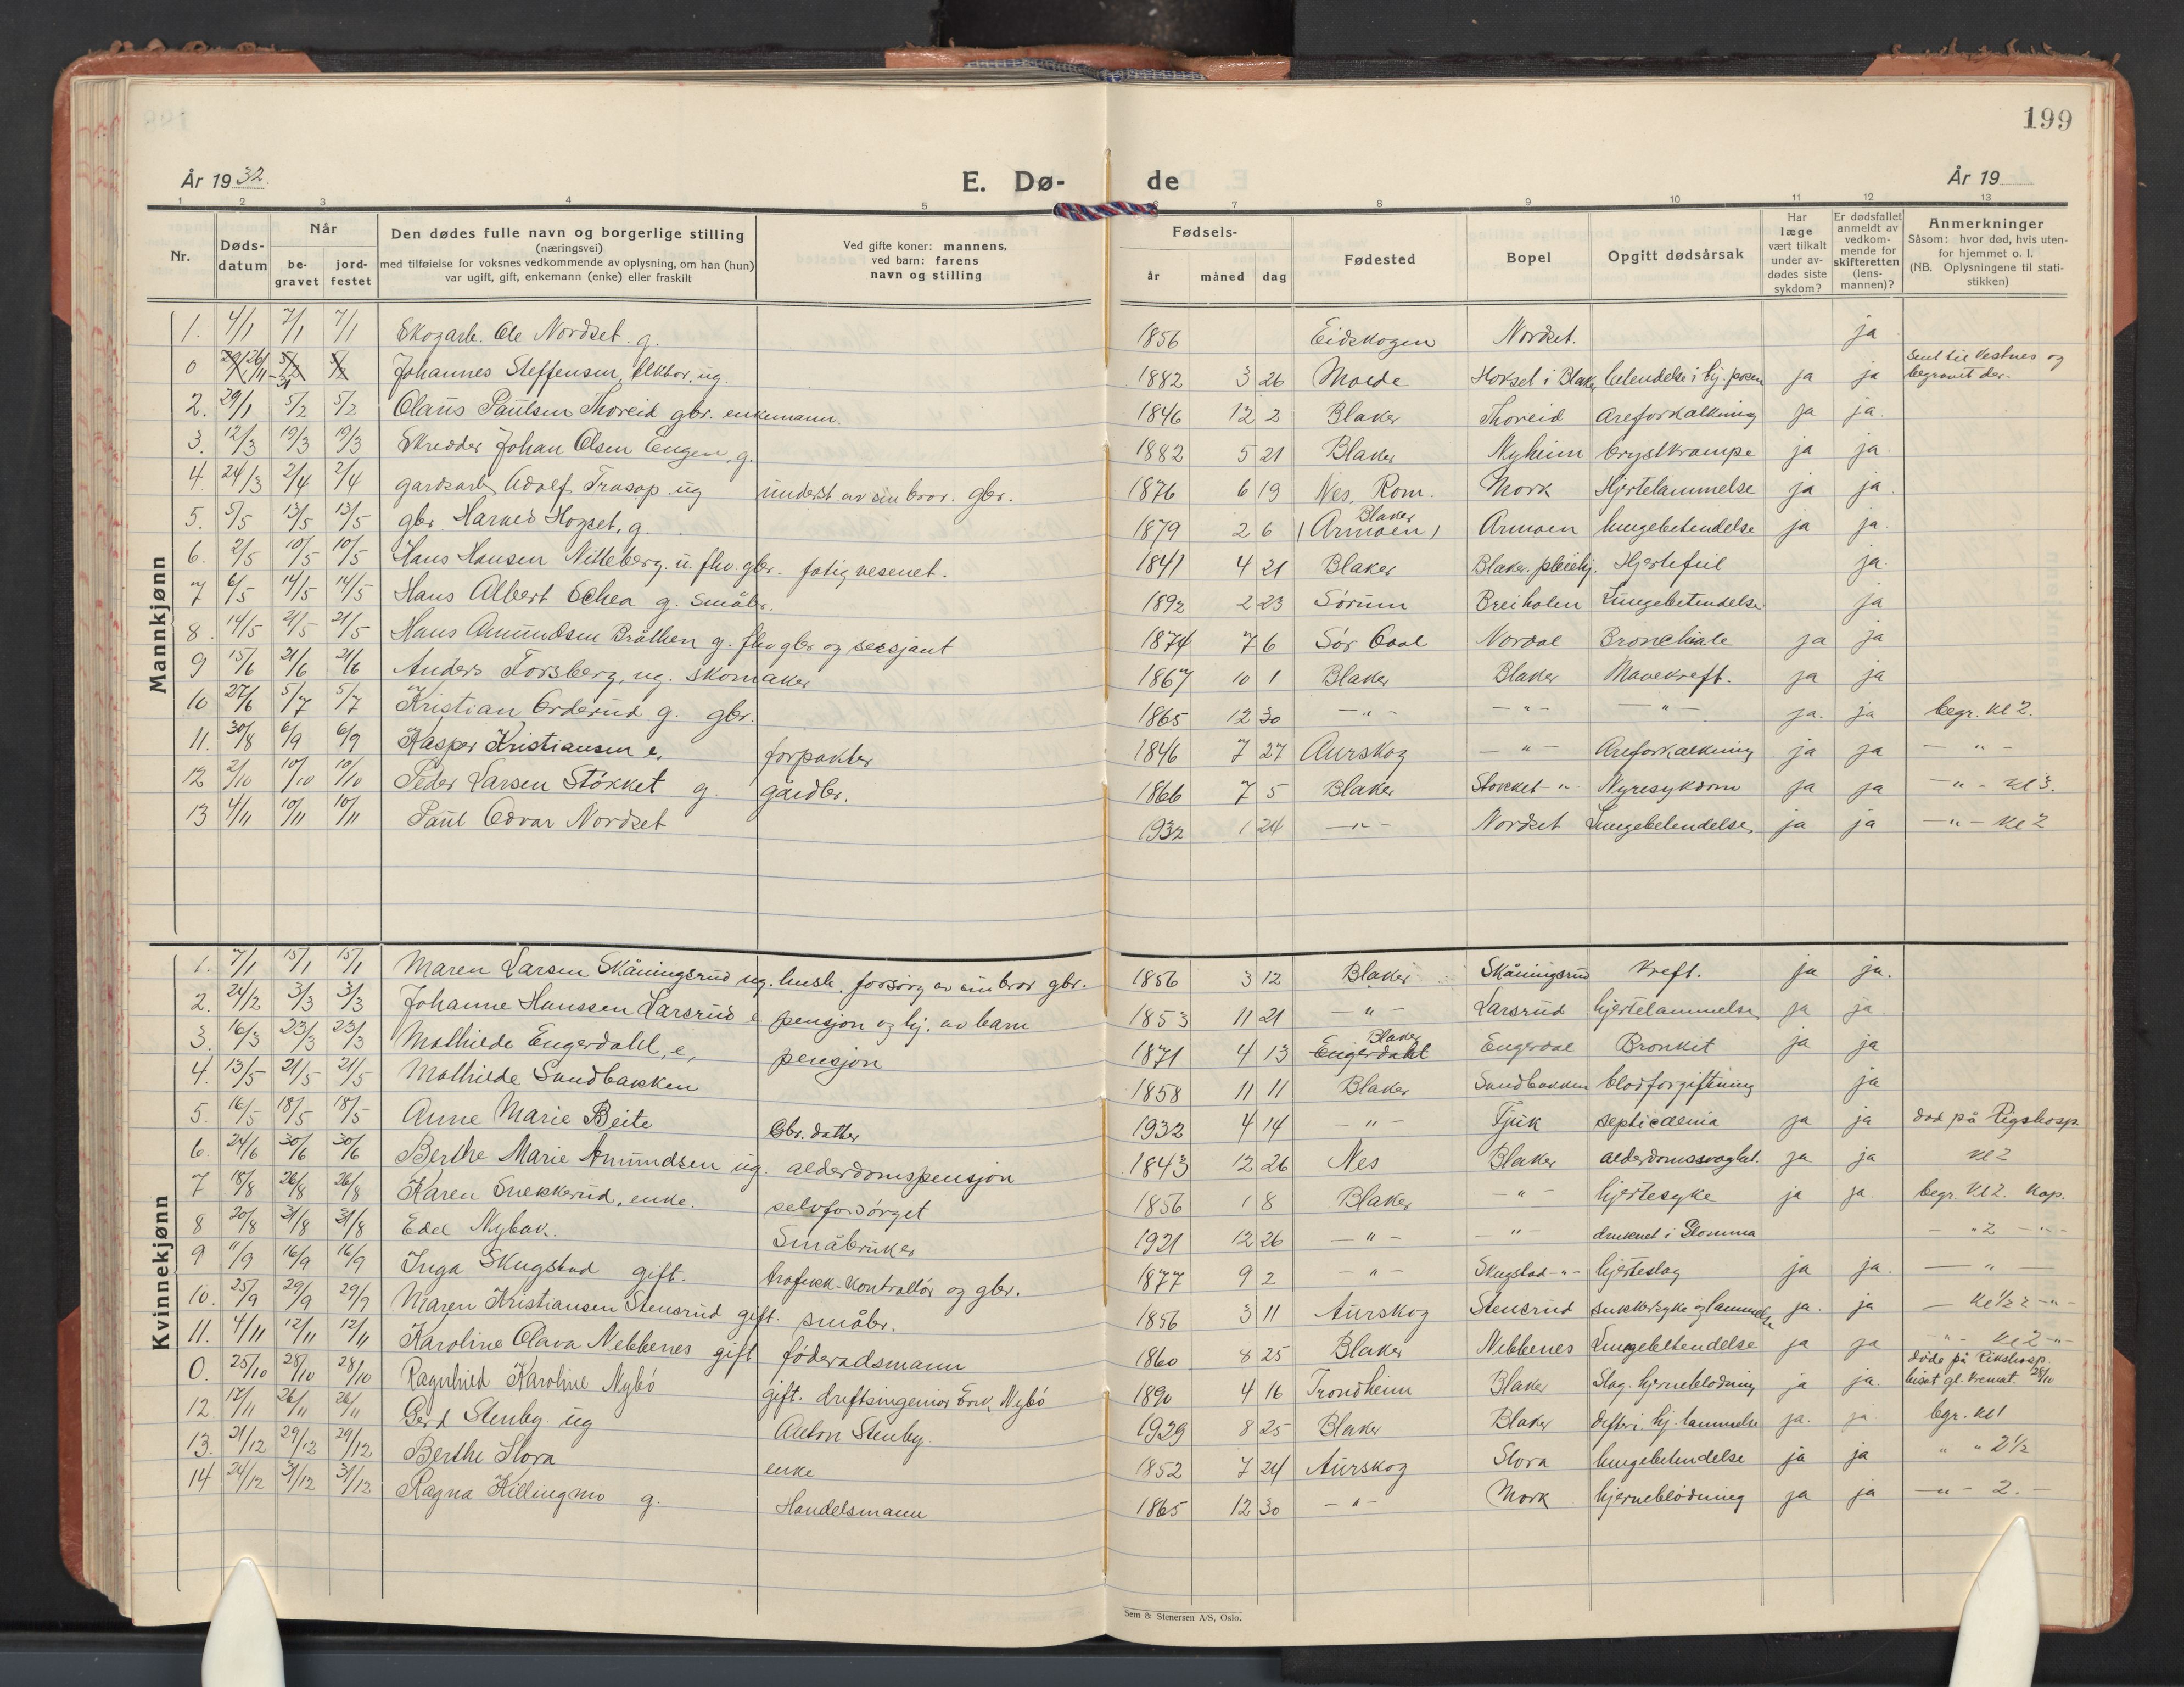 199
År 1932.
E. Dø-
de
År 19
1 2 3 4 5 6 7 8 9 10 11 12 13
Nr. Døds-datum Når be-gravet jord-festet Den dødes fulle navn og borgerlige stilling (næringsvei) med tilføielse for voksnes vedkommende av oplysning, om han (hun) var ugift, gift, enkemann (enke) eller fraskilt Ved gifte koner: mannens, ved barn: farens navn og stilling Fødsels- år måned dag Fødested Bopel Opgitt dødsårsak Har læge vært tilkalt under av-dødes siste sykdom? Er dødsfallet anmeldt av vedkom-mende for skifteretten (lens-mannen)? Anmerkninger Såsom: hvor død, hvis uten-for hjemmet o. l. (NB. Oplysningene til stati-stikken)
Mannkjønn
1. 4/1 7/1 7/1 Skogarb. Ole Nordset. g. 1856 Eidskogen Nordset. ja
0 Johannes Steffensen, ug. 1882 3 26 Molde i Blaker ja ja Sent til Vestnes og begravet der.
2. 29/1 5/2 5/2 Olaus Paulsen Thoreid gbr. enkemann. 1846 12 2 Blaker Thoreid Areforkalkning ja ja.
3. 12/3 19/3 19/3 Skredder Johan Olsen Engen, g. 1882 5 21 Blaker Nyheim brystkrampe ja ja
4. 24/3 2/4 2/4 gardsarb. Adolf Trusop ug underst. av sin bror. gbr. 1876 6 19 Nes Rom. Mork Hjertelammelse ja ja.
5. 5/5 13/5 13/5 gbr. Harald Hogset, g. 1879 2 6 Blaker (Armoen) Armoen lungebetendelse ja ja.
6. 2/5 10/5 10/5 Hans Hansen Nitteberg. u. fhv. gbr. fatigvesenet. 1841 4 21 Blaker Blaker. pleiehj. Hjertefeil ja.
7 6/5 14/5 14/5 Hans Albert Echea g. småbr. 1892 2 23 Sørum Breiholen Lungebetendelse ja
8. 14/5 21/5 21/5 Hans Amundsen Bråthen g. fhv gbr og sersjant 1874 7 6 Sør Odal Nordal Bronchiale ja ja
9 15/6 21/6 21/6 Anders Forsberg, ug. skomaker 1867 10 1 Blaker Blaker Mavekreft. ja ja
10 27/6 5/7 5/7 Kristian Orderud g. gbr. 1865 12 30 -"- -"- -"- ja. ja begr. kl 2.
11. 30/8 6/9 6/9 Kasper Kristiansen e. forpakter 1846 7 27 Aurskog -"- Areforkalkning ja ja -"-
12 2/10 10/10 10/10 Peder Larsen Støkket g. gårdbr. 1866 7 5 Blaker Støkket -"- Nyresykdom ja ja -"- kl 3.
13 4/11 10/11 10/11 Paul Odvar Nordset 1932 1 24 -"- Nordset Lungebetendelse ja ja -"- kl 2
Kvinnekjønn
1. 7/1 15/1 15/1 Maren Larsen Skåningsrud ug. hush. forsørg av sin bror gbr. 1856 3 12 Blaker Skåningsrud Kreft. ja ja.
2. 24/2 3/3 3/3 Johanne Hanssen Larsrud e. pensjon og hj. av barn 1853 11 21 -"- Larsrud hjertelammelse ja ja
3. 16/3 23/3 23/3 Mathilde Engerdahl, e, pensjon 1871 4 13 Blaker Engerdahl Engerdal Bronkit ja ja
4. 13/5 21/5 21/5 Mathilde Sandbakken 1858 11 11 Blaker Sandbakken blodforgiftning ja
5. 16/5 18/5 18/5 Anne Marie Beite Gbr. datter 1932 4 14 -"- Fjuk septicaemia ja ja død på Rigshosp.
6. 24/6 30/6 30/6 Berthe Marie Amundsen ug. alderdomspensjon 1843 12 26 Nes Blaker alderdomssvaghet. ja ja kl 2
7 18/8 26/8 26/8 Karen Snekkerud, enke. selvforsørget 1856 1 8 Blaker -"- hjertesyke ja ja begr. kl 2. kap.
8 20/8 31/8 31/8 Edel Nybak. Småbruker 1921 12 26 -"- -"- druknet i Glomma - "2 -"-
9 11/9 16/9 16/9 Inga Skugstad gift. trafikk-kontrollør og gbr. 1877 9 2 -"- Skugstad -"- hjerteslag ja ja. -"-
10. 25/9 29/9 29/9 Maren Kristiansen Stensrud gift. småbr. 1856 3 11 Aurskog Stensrud sukkersyke og lammelse ja. ja - kl ½ 2 -"-
11. 4/11 12/11 12/11 Karoline Olava Nebbenes gift føderadsmann 1860 8 25 Blaker Nebbenes Lungebetendelse ja ja -"- kl 2 -"-
0. 25/10 28/10 28/10 Ragnhild Karoline Nybö gift. driftsingeniør Nybö 1890 4 16 Trondheim Blaker Slag. hjerneblødning ja ja. døde på Rikshosp. biset gl. Kremat. 28/10
12. 17/11 26/11 26/11 Gerd Stenby ug Anton Stenby. 1929 8 25 Blaker Blaker difteri. hj. lammelse ja. ja begr. kl 1
13. 21/12 29/12 29/12 Berthe Slora enke 1852 7 24 Aurskog Slora lungebetendelse ja ja " " 2½
14 24/12 31/12 31/12 Ragna Killingmo g. Handelsmann 1865 12 30 -"- Mork hjerneblødning ja ja -"- 2. -
Sem & Stenersen A/S, Oslo.